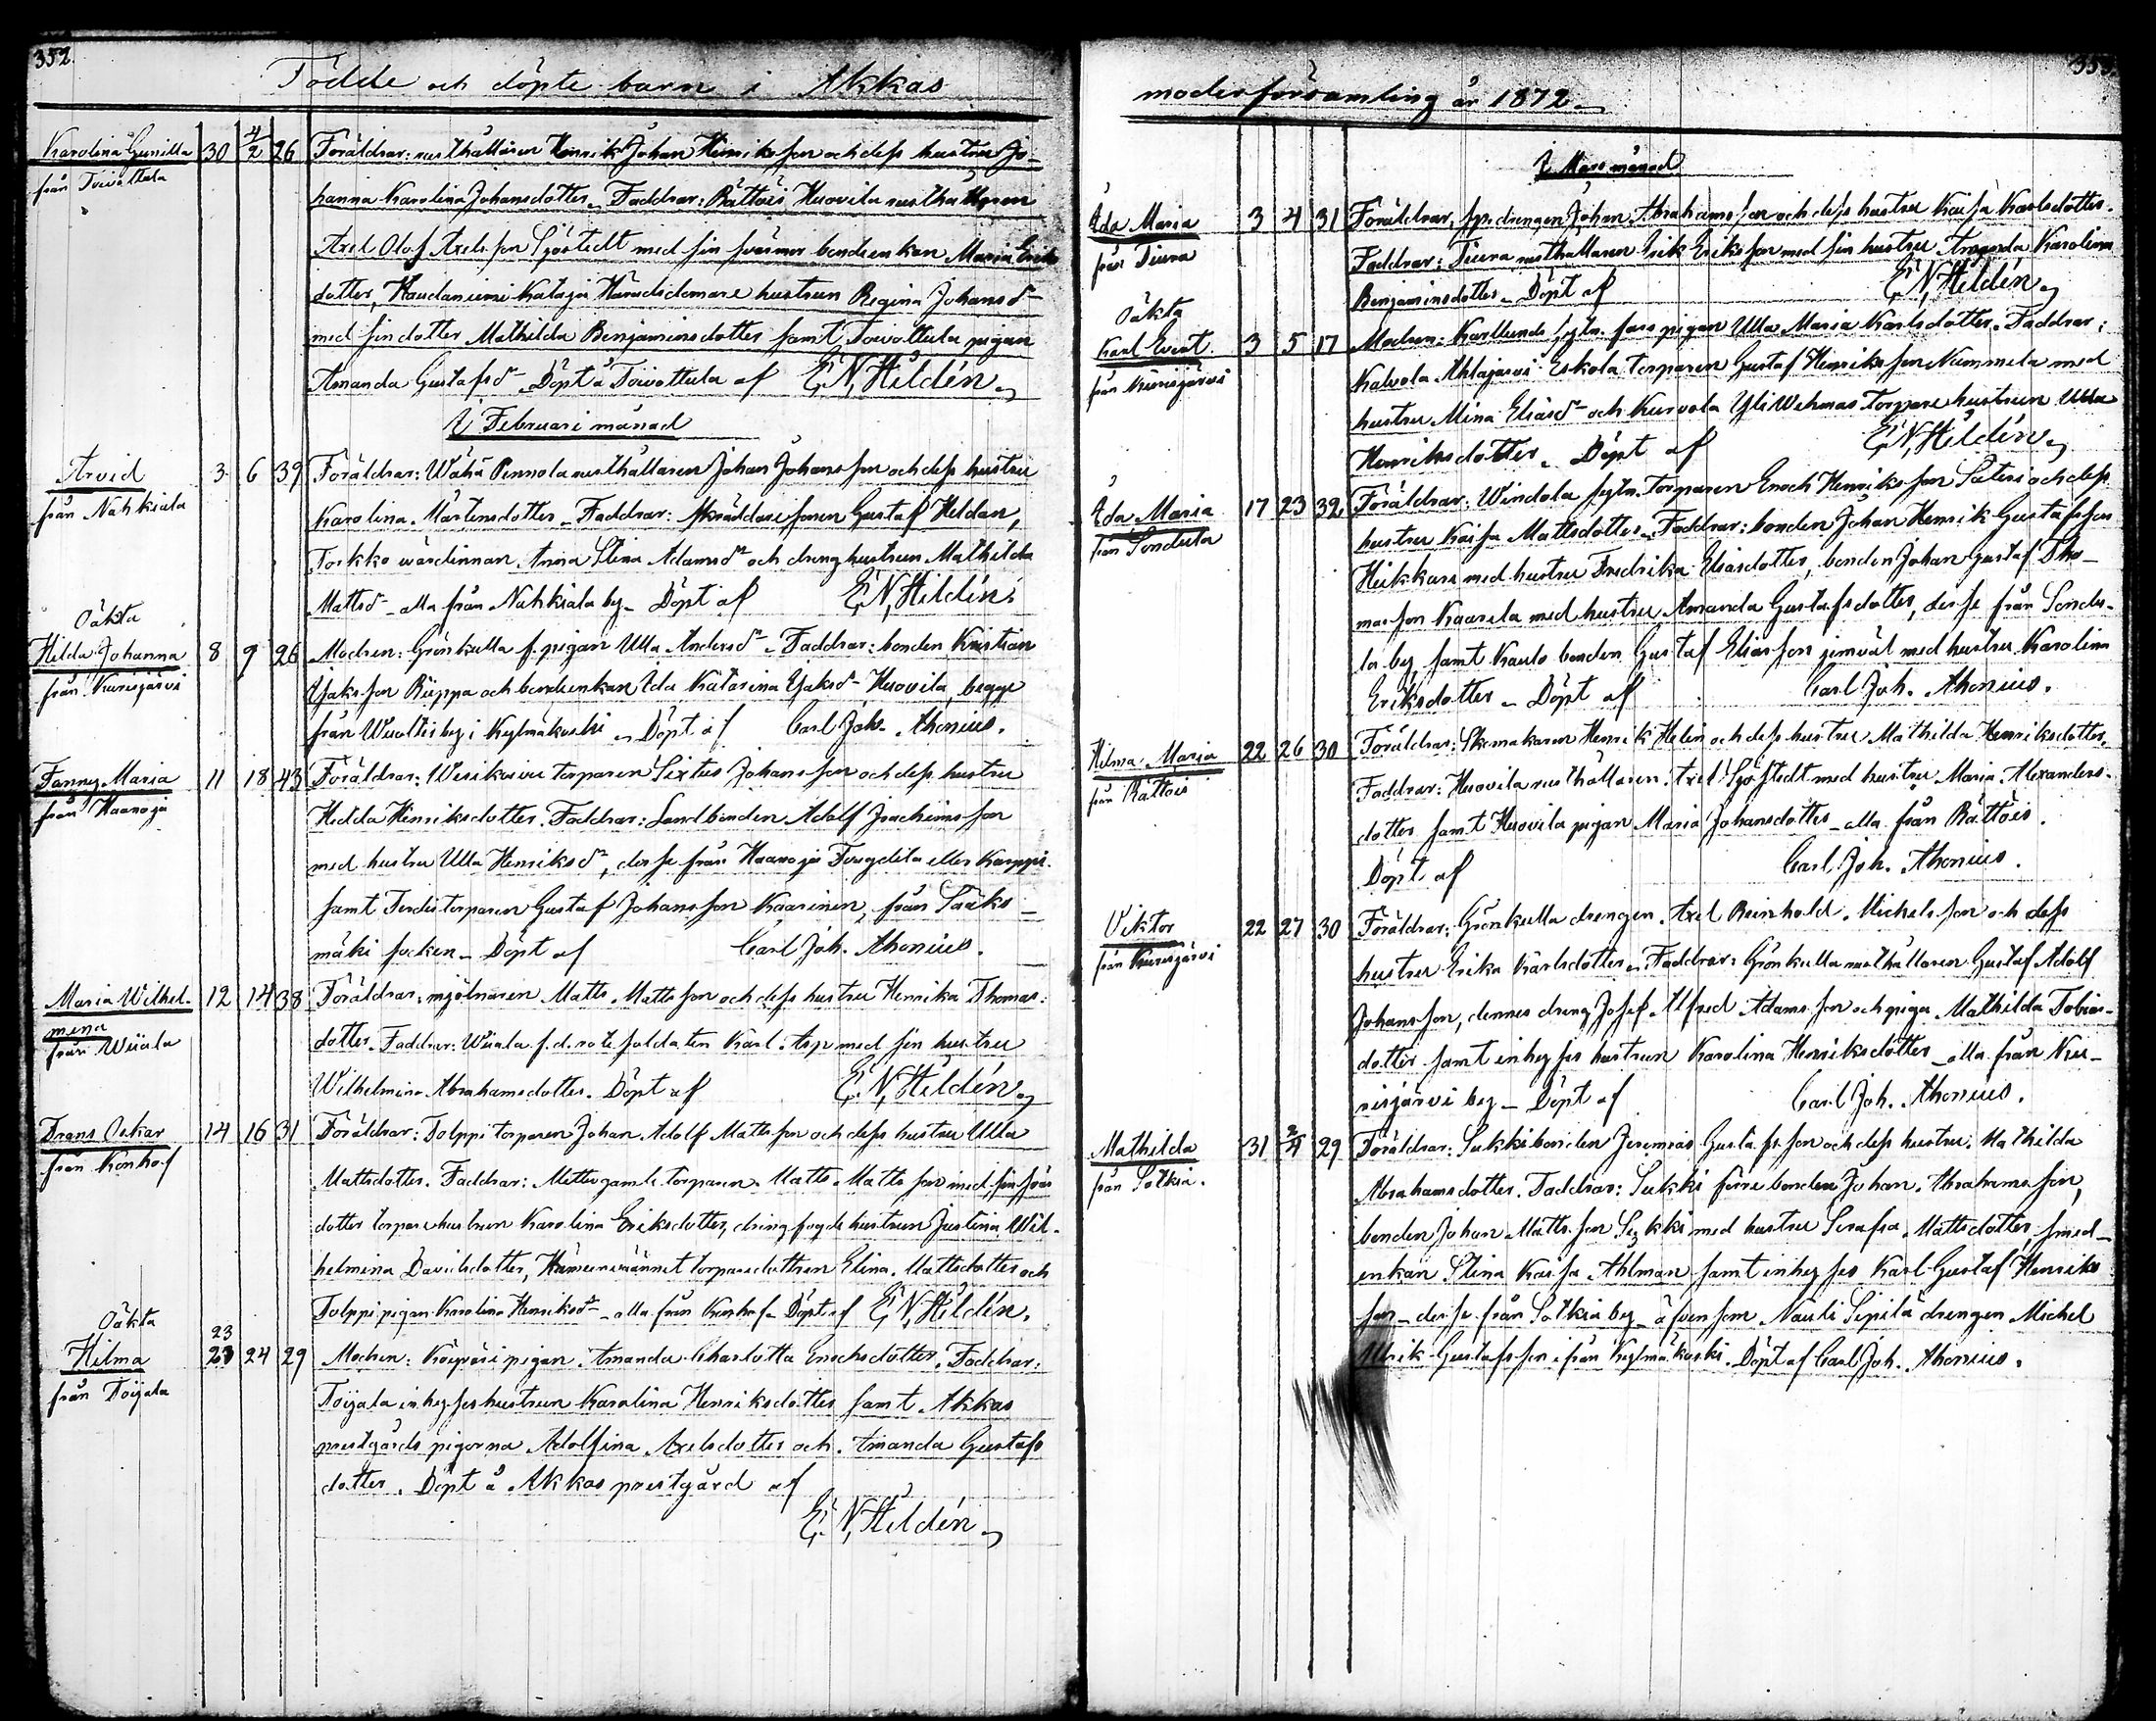 352.
Födde och döpte barn i Akkas
Karolina Gunilla 30 4/2 26 Föräldrar: rusthållaren Henrik Johan Henriksson och dess hustru Jo-
från Toivottula
hanna Karolina Johansdotter. Faddrar: Rättöis Heuvila rusthållaren
Axel Olof Axelsson Sjöstedt med sin svärmor bondeenkan Maria Eriks
dotter, Haudaniemi Kataja Häradsdomare hustrun Regina Johansdr
med sin dotter Mathilda Benjaminsdotter samt Toivottula pigan
Amanda Gustafsdr Döpt å Toivottula af E. N. Hildén
I Februari månad
Arvid 3 6 39 Föräldrar: Wähä Pennola rusthållaren Johan Johansson och dess hustru
från Nahkiala
Karolina Mårtensdotter. Faddrar: skräddaresonen Gustaf Heldan,
Torkko wärdinnan Anna Stina Adamsdr och dräng hustrun Mathilda
Mattsdr alla från Nahkiala by. Döpt af E. N. Hildén.
Oäkta
Hilda Johanna 8 9 26 Modren: Grönkulla f. pigan Ulla Andersdr Faddrar: bonden Kristian
från Kurisjärvi
Isaksson Riippa och bondeenkan Ida Katarina Isaksdr Heuvila, begge
från Wuoltis by i Kylmäkoski. Döpt af Carl Joh. Ahonius.
Fanny Maria 11 18 43 Föräldrar: Wesikaivu torparen Sixtus Johansson och dess hustru
från Haanoja
Hedda Henriksdotter. Faddrar: Landbonden Adolf Joachimsson
med hustru Ulla Henriksdr, desse från Haanoja eller Karppi.
samt torparen Gustaf Johansson Kaarinen, från Sääks-
mäki socken. Döpt af Carl Joh. Ahonius.
Maria Wilhel- 12 14 38 Föräldrar: mjölnaren Matts Mattsson och dess hustru Henrika Thomas-
mina
från Wiiala
dotter. Faddrar: Wiiala f. d. rote soldaten Karl Asp med sin hustru
Wilhelmina Abrahamsdotter. Döpt af E. N. Hildén
Frans Oskar 14 16 31 Föräldrar: Tolppi torparen Johan Adolf Mattsson och dess hustru Ulla
från Konhof
Mattsdotter. Faddrar: torparen Matts Mattsson med sin svär
dotter torpare hustrun Karolina Eriksdotter, drängfogde hustrun Justina Wil-
helmina Davidsdotter, torparedottren Elina Mattsdotter och
Tolppi pigan Karolina Henriksdr alla från Konhof. Döpt af E. N. Hildén.
Oäkta
23
Hilma 23 24 29 Modren: pigan Amanda Charlotta Enochsdotter. Faddrar:
från Toijala
Toijala inhyses hustrun Karolina Henriksdotter samt Akkas
prestgårds pigorna Adolfina Axelsdotter och Amanda Gustafs
dotter. Döpt å Akkas prestgård af
E. N. Hildén
353.
moderförsamling år 1872.
I Mars månad
Ida Maria 3 4 31 Föräldrar, drengen Johan Abrahamsson och dess hustru Kaisa Karlsdotter.
från Tiura
Faddrar: Tiura rusthållaren Erik Eriksson med sin hustru Amanda Karolina
Benjaminsdotter. Döpt af E. N. Hildén
Oäkta
Karl Evert 3 5 17 Modren: pigan Ulla Maria Karlsdotter. Faddrar:
från Kurisjärvi
Kalvola Ahlajärvi Eskola torparen Gustaf Henriksson Nummela med
hustru Mina Eliasdr och Kurvola torpare hustrun Ulla
Henriksdotter. Döpt af E. N. Hildén
Ida Maria 17 23 32 Föräldrar: Windala torparen Enoch Henriksson Säteri och dess
från Sondula
hustru Kaisa Mattsdotter. Faddrar: bonden Johan Henrik Gustafsson
Heikkari med hustru Fredrika Eliasdotter, bonden Johan Gustaf Tho-
masson Kaarila med hustru Amanda Gustafsdotter, desse från Sondu-
la by samt bonden Gustaf Eliasson jemväl med hustru Karolina
Eriksdotter. Döpt af Carl Joh. Ahonius.
Hilma Maria 22 26 30 Föräldrar: Skomakaren Henrik Helin och dess hustru Mathilda Henriksdotter.
från Rättöis
Faddrar: Heuvila rusthållaren Axel Sjöstedt med hustru Maria Alexanders-
dotter samt Heuvila pigan Maria Johansdotter alla från Rättöis.
Döpt af Carl Joh. Ahonius.
Viktor 22 27 30 Föräldrar: Grönkulla drengen Axel Reinhold Michelsson och dess
från Kurisjärvi
hustru Erika Karlsdotter. Faddrar: Grönkulla rusthållaren Gustaf Adolf
Johansson, dennes dreng Josef Alfred Adamsson och piga Mathilda Tobias-
dotter samt inhyses hustrun Karolina Henriksdotter alla från Ku-
risjärvi by. Döpt af Carl Joh. Ahonius.
Mathilda 31 2/4 29 Föräldrar: Sukki bonden Jeremias Gustafsson och dess hustru Mathilda
från Sotkia.
Abrahamsdotter. Faddrar: Sukki förre bonden Johan Abrahamsson,
bonden Johan Mattsson Sukki med hustru Serafia Mattsdotter, smed-
enkan Stina Kaisa Ahlman samt inhyses Karl Gustaf Henriks
son desse från Sotkia by äfvensom Nauli Sipilä drengen Michel
Ulrik Gustafsson ifrån Kylmäkoski. Döpt af Carl Joh. Ahonius.